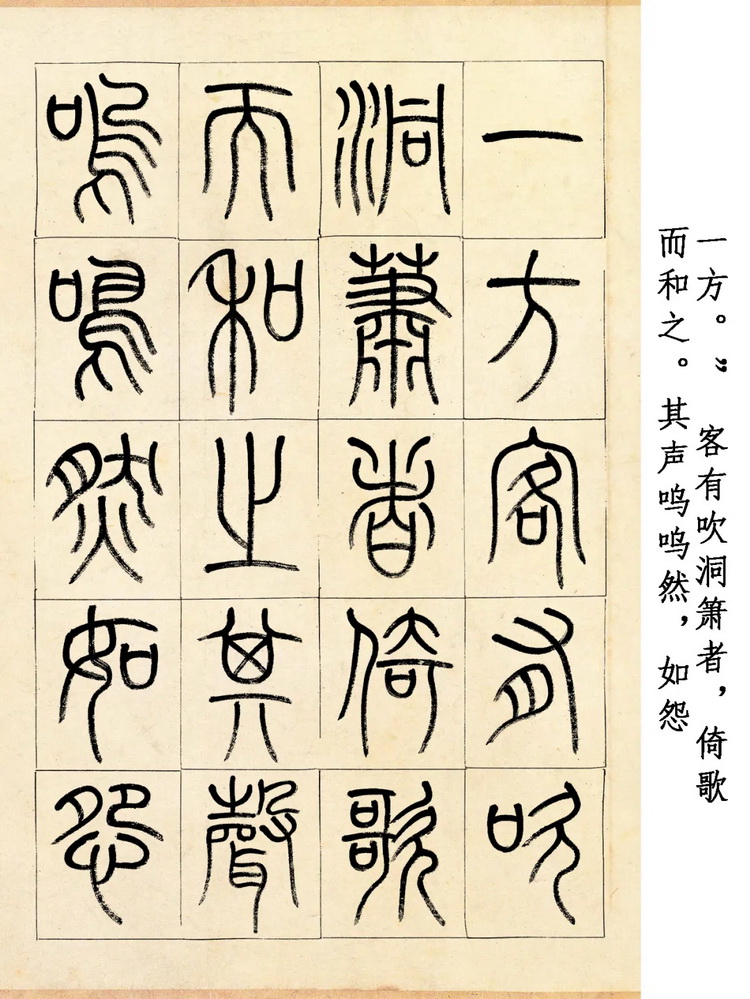 一方客有吹
洞蕭者倚歌
而和之其聲
嗚嗚然如怨
一方。” 客有吹洞箫者，倚歌
而和之。其声呜呜然，如怨